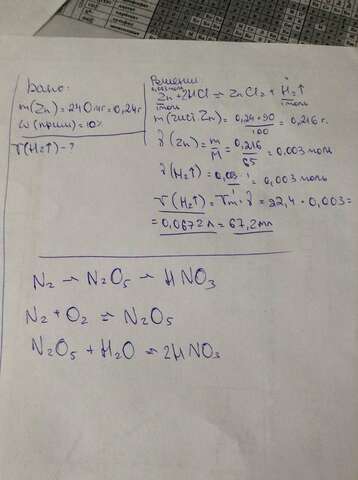 Дано:
m(Zn)=240мг=0,24г
ω(прим)=10%
V(H₂↑)-?
Решение
0,003моль
Zn+2HCl = ZnCl₂ + H₂↑
1моль 1моль
m(чист Zn) = 0,24·90/100 = 0,216г.
γ(Zn) = m/M = 0,216/65 = 0,003 моль
γ(H₂↑) = 0,003·1/1 = 0,003 моль
V(H₂↑) = Vm·γ = 22,4·0,003=
= 0,0672л = 67,2мл
N₂ → N₂O₅ → HNO₃
N₂ + O₂ = N₂O₅
N₂O₅ + H₂O = 2HNO₃